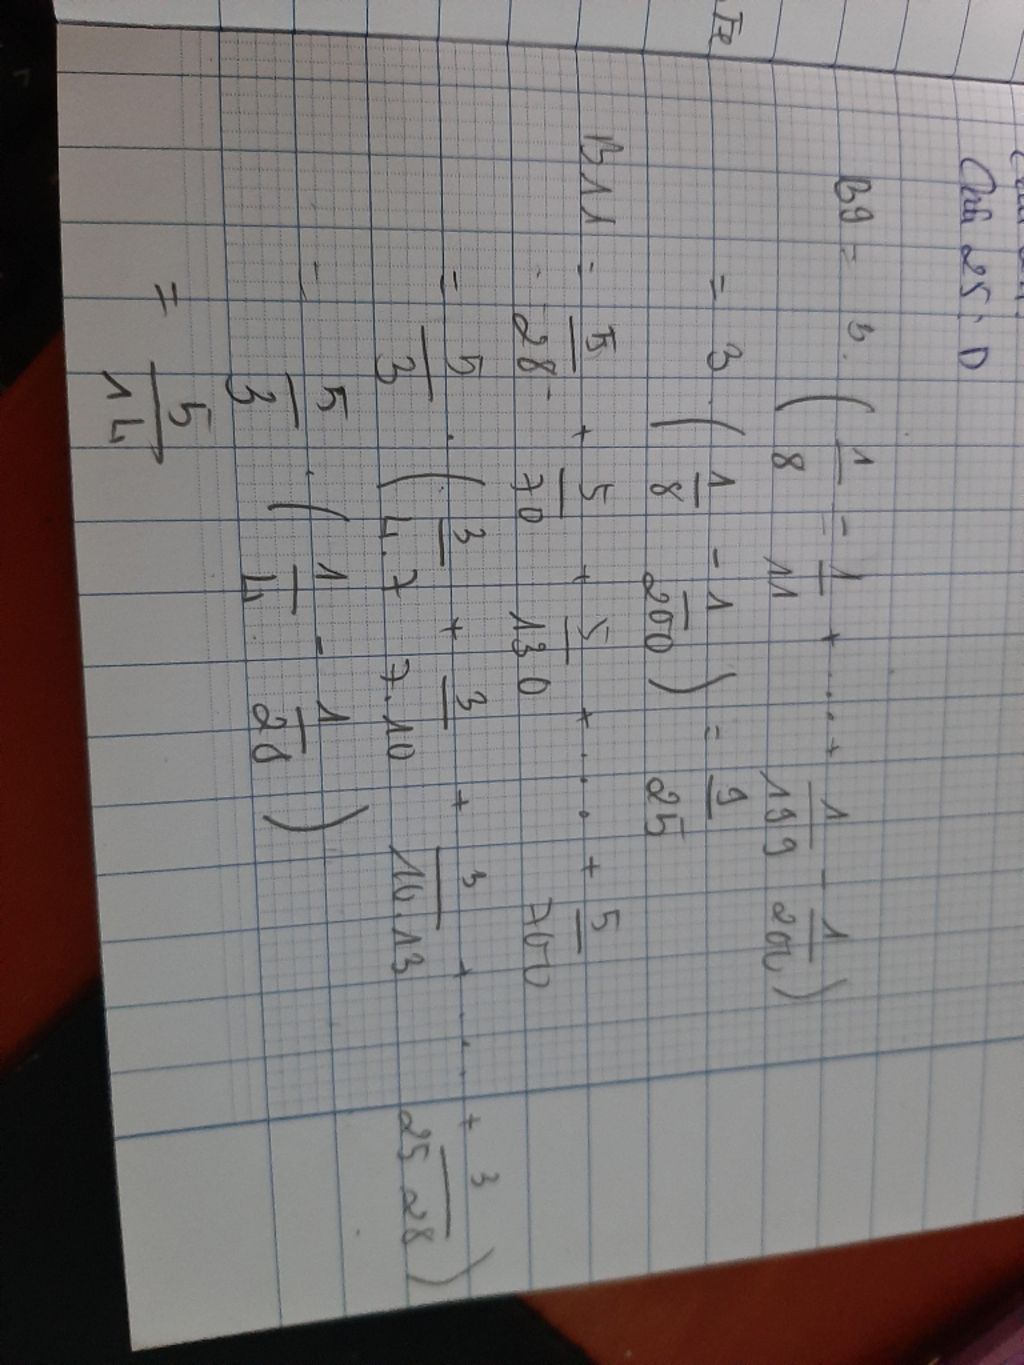 Câu 25: D
B9 = 3. ( 1/8 - 1/11 + .... + 1/199 - 1/200 )
= 3. ( 1/8 - 1/200 ) = 9/25
B11 = 5/28 + 5/70 + 5/130 + .... + 5/700
= 5/3 . ( 3/4.7 + 3/7.10 + 3/10.13 + .... + 3/25.28 )
= 5/3 . ( 1/4 - 1/28 )
= 5/14